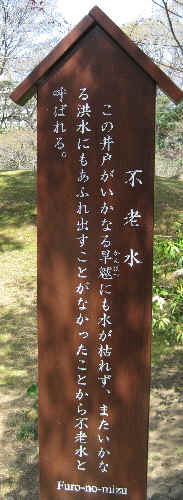 不老水
この井戸がいかなる旱魃にも水が枯れず、またいかな
かんばつ
る洪水にもあふれ出すことがなかったことから不老水と
呼ばれる。
Furo-no-mizu